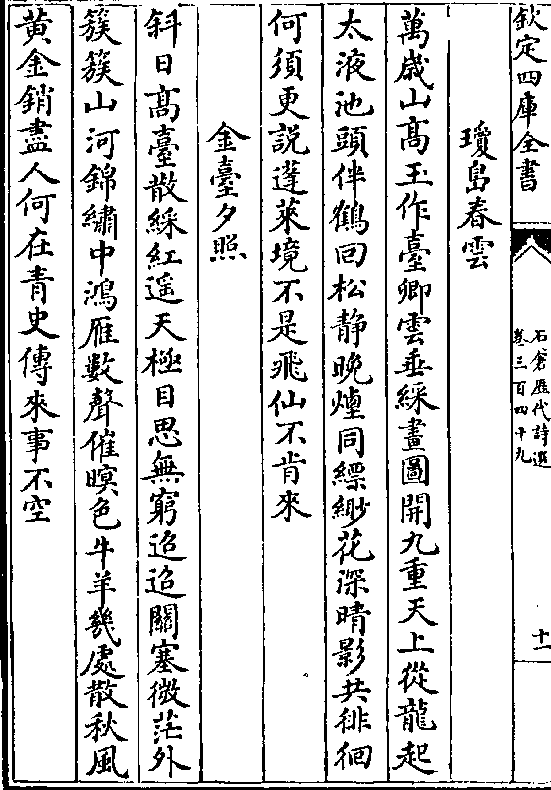 欽定四庫全書
石倉歷代詩選
卷三百四十九
十一
瓊島春雲
萬歲山高玉作臺卿雲垂綵畫圖開九重天上從龍起
太液池頭伴鶴回松静晩煙同縹緲花深晴影共徘徊
何須更説蓬萊境不是飛仙不肯來
金臺夕照
斜日髙臺散綵紅遥天極目思無窮迢迢關塞微茫外
簇簇山河錦繡中鴻雁數聲催暝色牛羊幾處散秋風
黄金銷盡人何在青史傳來事不空